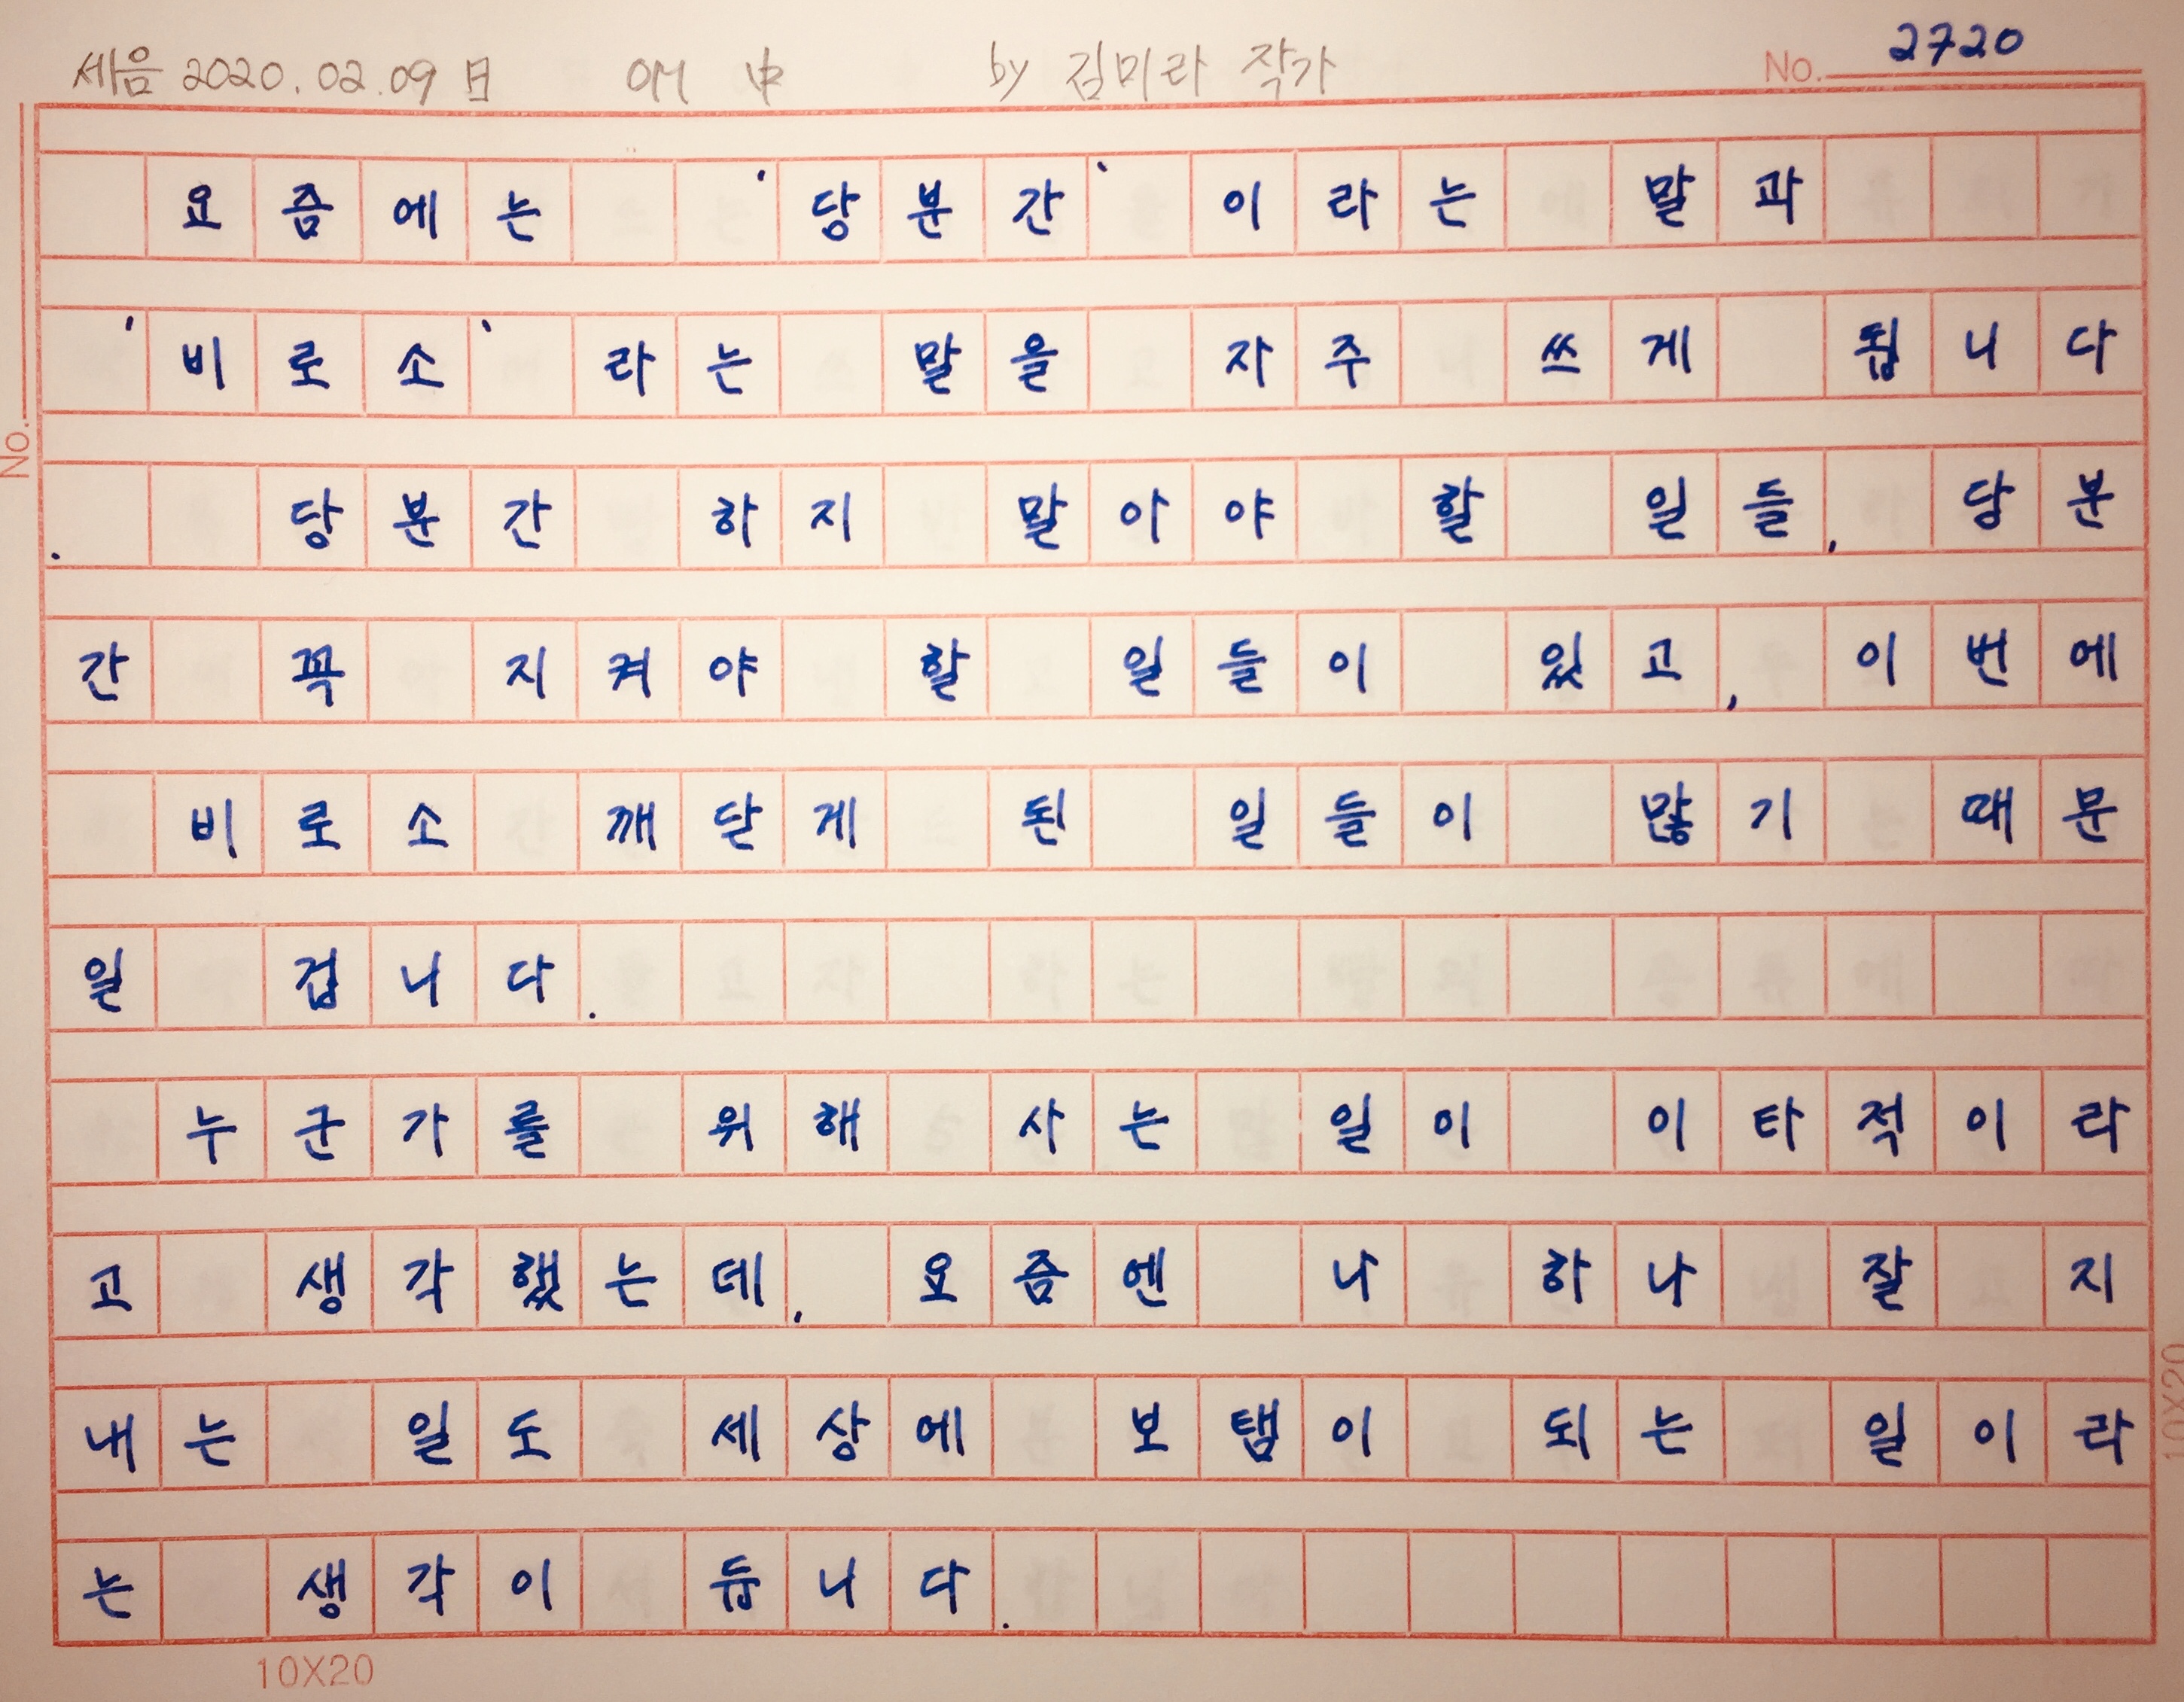 세음 2020.02.09 日 에 中 by 김미라 작가 No. 2720
요즘에는 '당분간' 이라는 말과
'비로소' 라는 말을 자주 쓰게 됩니다
. 당분간 하지 말아야 할 일들, 당분
간 꼭 지켜야 할 일들이 있고, 이번에
비로소 깨닫게 된 일들이 많기 때문
일 겁니다.
누군가를 위해 사는 일이 이타적이라
고 생각했는데, 요즘엔 나 하나 잘 지
내는 일도 세상에 보탬이 되는 일이라
는 생각이 듭니다.
No.
10X20
10X20